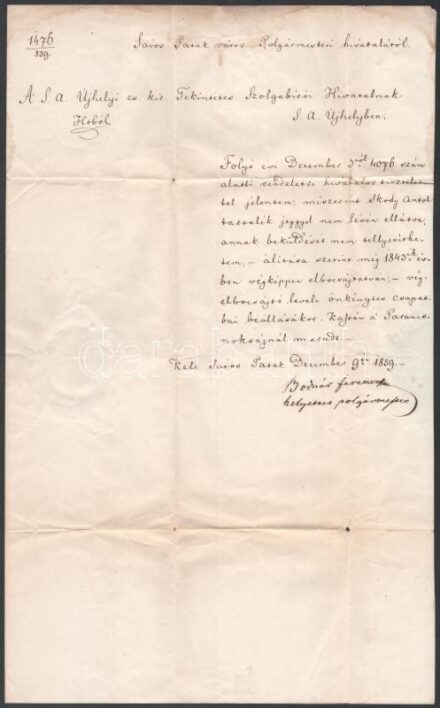 1476
859.
Sáros Patak város Polgármesteri hivatalától.
A S. A. Ujhelyi cs. kir. Tekintetes Szolgabírói Hivatalnak
Htból
S. A. Ujhelyben,
Folyó évi December 3ról 4076 szám
alatti rendeletre hivatalos tisztelet
tel jelentem, miszerint Skody Antal
jeggyel nem lévén ellátva,
annak beküldését nem tellyesithe
tem, – álitása szerint még 1843ik év
ben végképpen elbocsájtatván, – vég
elbocsájtó levele önkénytes csapat
bni beállásákor Kassán a
maradt –
Kelt Sáros Patak December 9én 1859.
Bodnár Ferencz
helyettes polgármester
darabanth